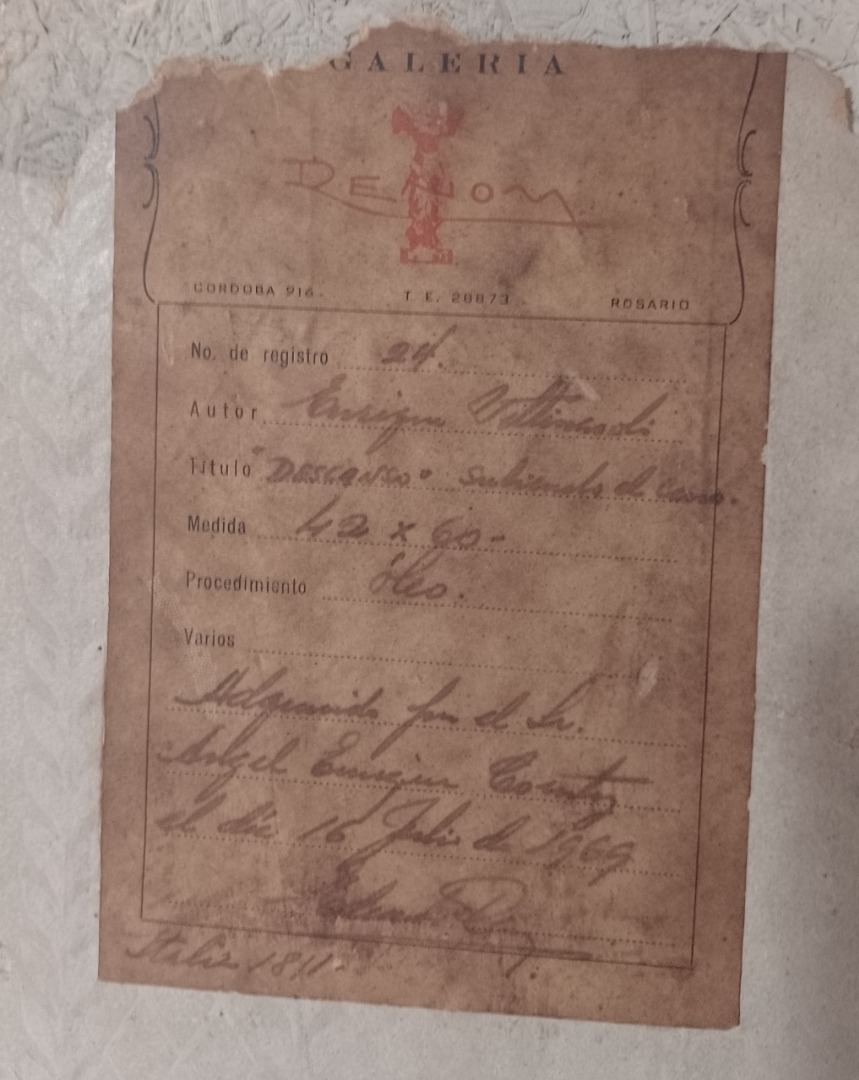 GALERIA
RENOM
CORDOBA 916. T. E. 28873 ROSARIO
No. de registro 24.
Autor Enrique
Título "DESCANSO" subiendo el
Medida 42 x 60-
Procedimiento óleo.
Varios
Adquirido por el Sr.
Angel Enrique
el día 16 Julio de 1969
Italia